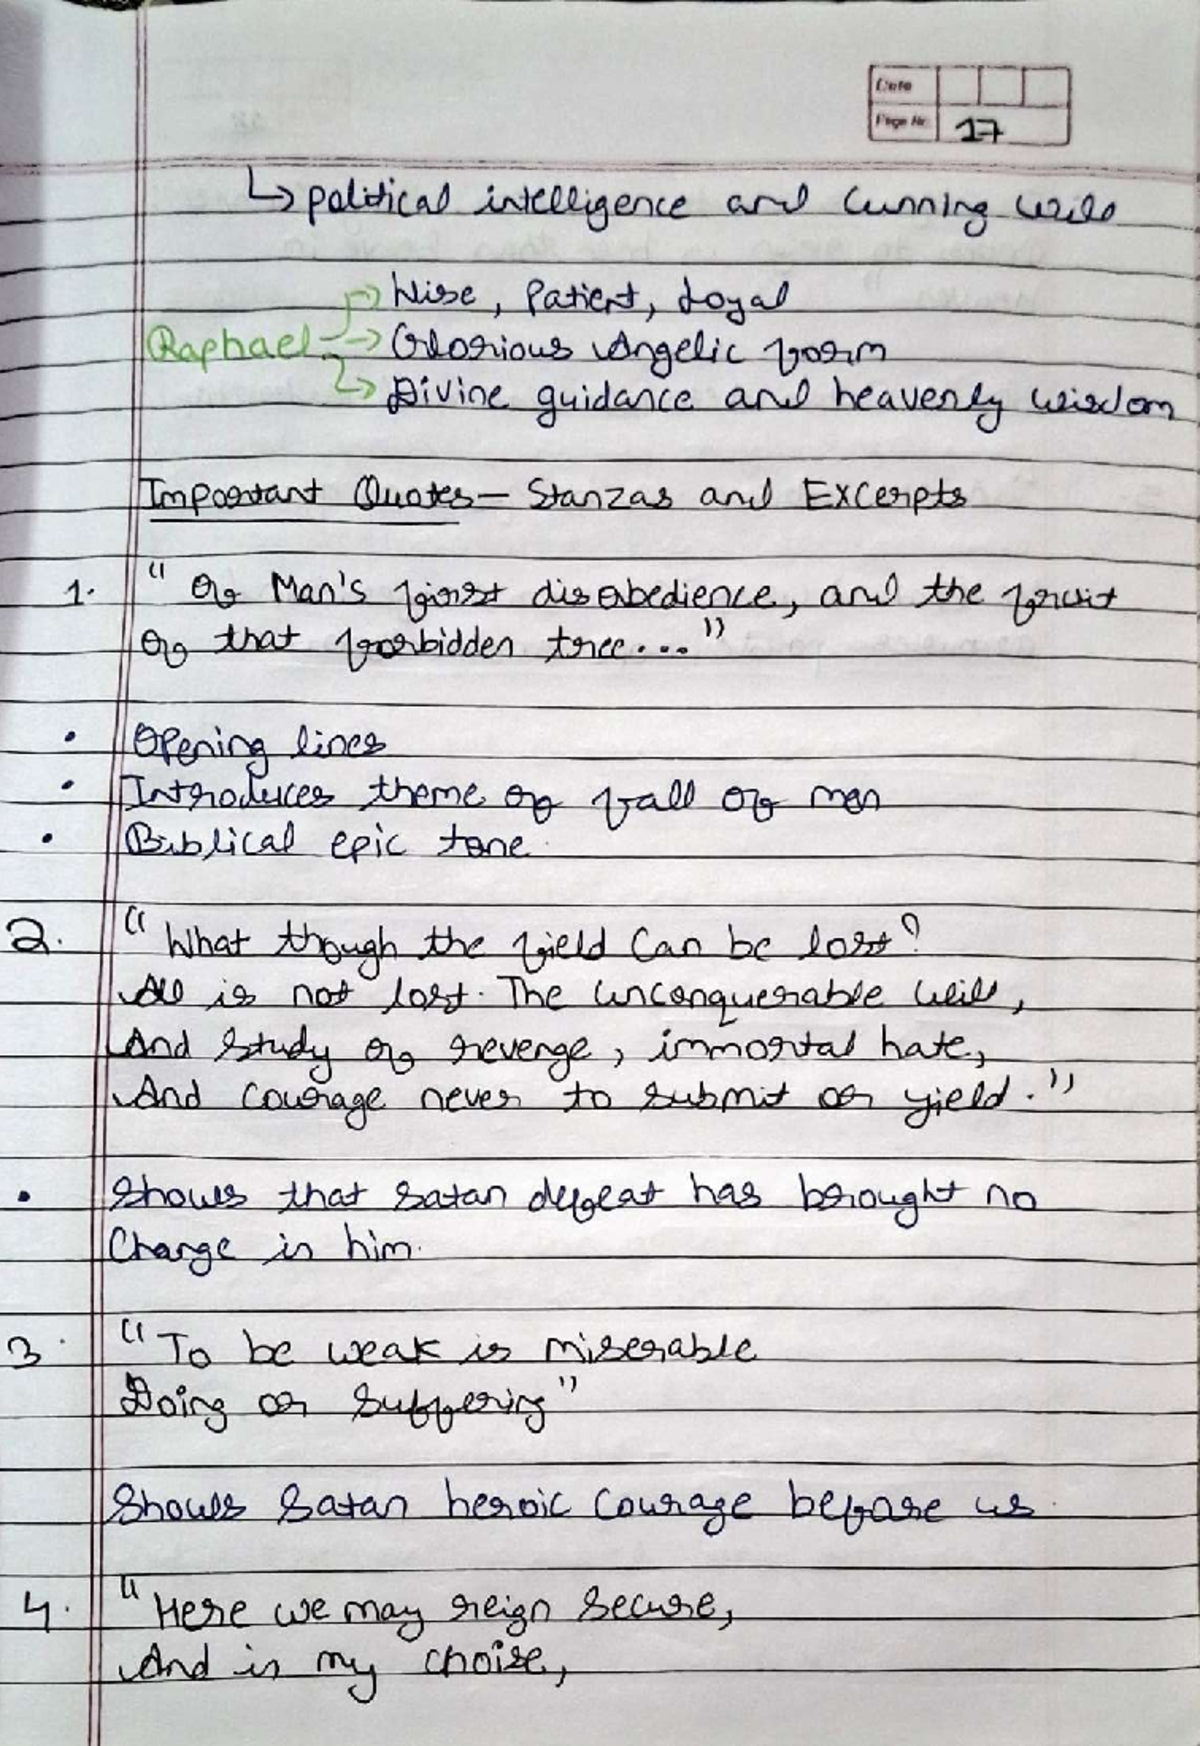 Date
Page No. 17
↳ Political intelligence and Cunning will
→ Wise, Patient, Loyal
Raphael → Glorious Angelic form
↳ Divine guidance and heavenly wisdom
Important Quotes— Stanzas and Excerpts
1. "Of Man's first disobedience, and the fruit
of that forbidden tree..."
• Opening lines
• Introduces theme of fall of men
• Biblical epic tone.
2. "What though the field Can be lost?
All is not lost. The unconquerable will,
And study of revenge, immortal hate,
And courage never to submit or yield."
• Shows that satan defeat has brought no
Change in him.
3. "To be weak is miserable
Doing or Suffering"
Shows Satan heroic Courage before us.
4. "Here we may reign Secure,
And in my choise,